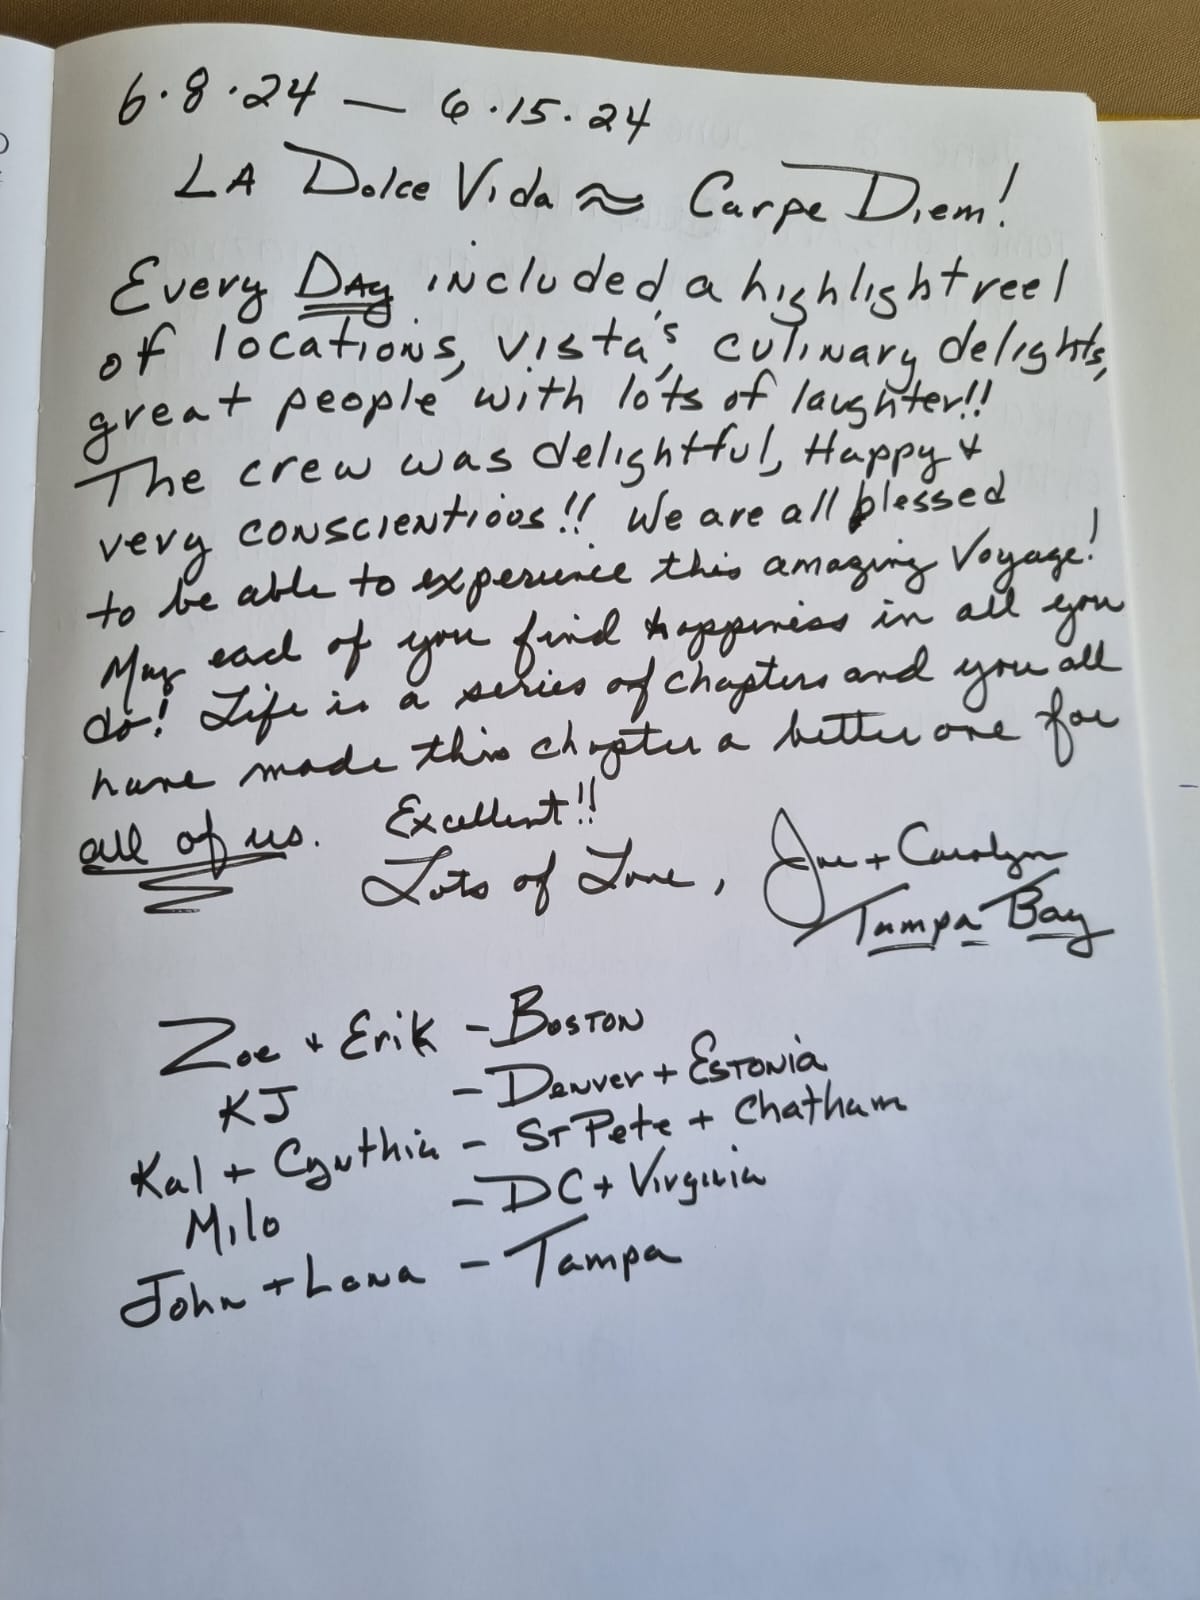 6.8.24 — 6.15.24
LA Dolce Vida ≈ Carpe Diem!
Every DAy included a highlight reel
of locations, vista's, culinary delights,
great people with lots of laughter!!
The crew was delightful, Happy &
very conscientious!! We are all blessed
to be able to experience this amazing Voyage!
May each of you find happiness in all you
do! Life is a series of chapters and you all
have made this chapter a better one for
all of us. Excellent!!
Lots of Love, Joe + Carolyn
Tampa Bay
Zoe & Erik - Boston
KJ - Denver + Estonia
Kal + Cynthia - St Pete + Chatham
Milo - DC + Virginia
John + Lana - Tampa